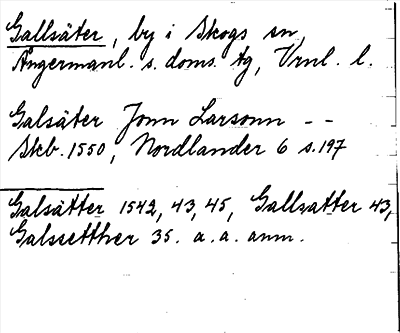 Gallsäter, by i Skogs sn,
Ångermanl. s. doms. tg, Vrnl. l.
Galsäter Jonn Larsonn - -
Skb. 1550, Nordlander 6 s. 197
Galsätter 1542, 43, 45, Gallsatter 43,
Galssetther 35. a. a. anm.